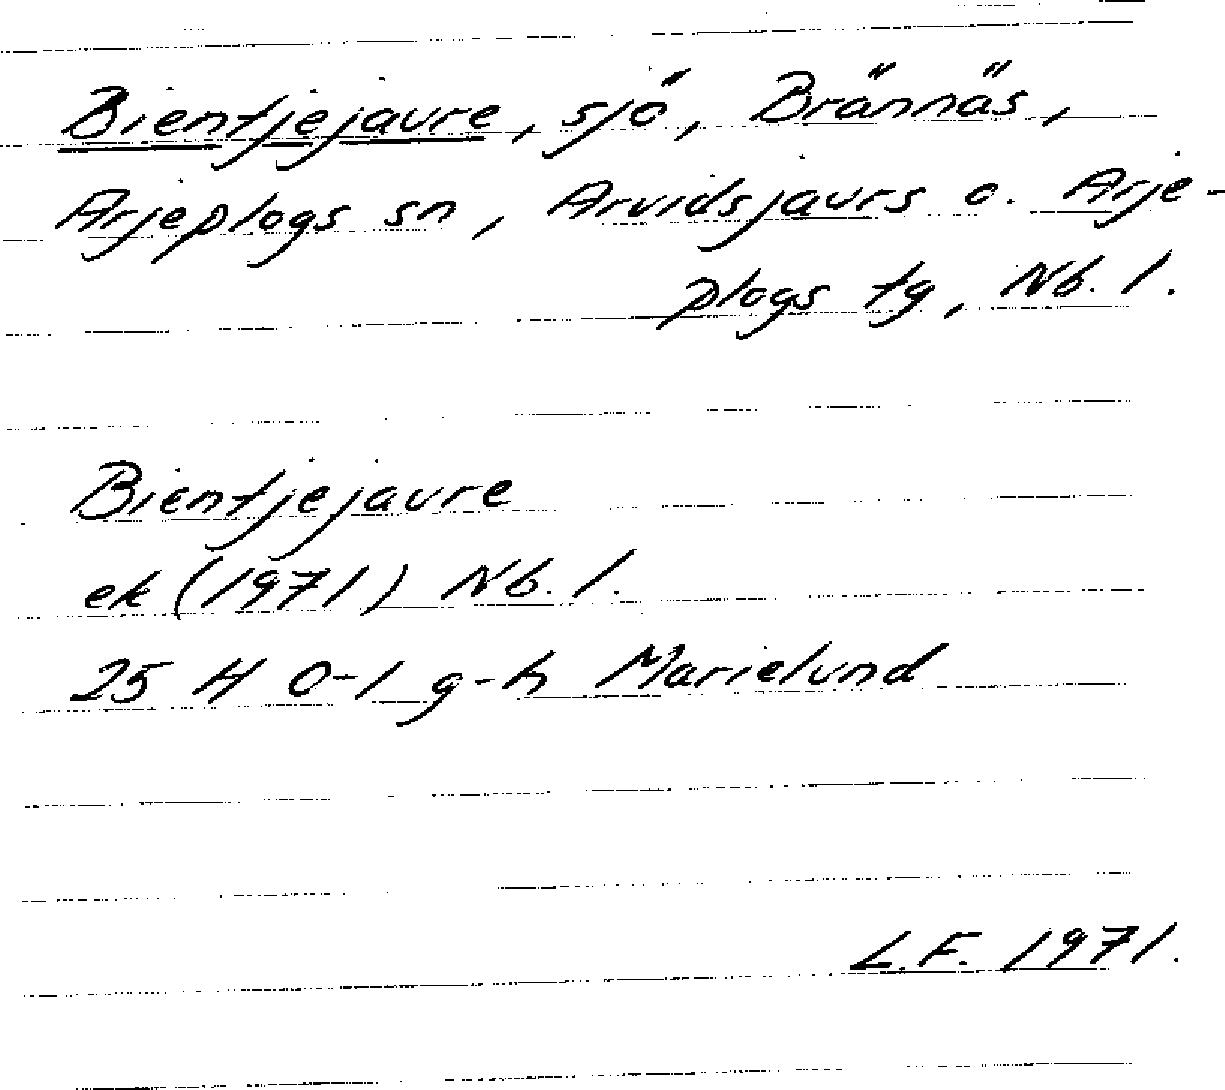 Bientjejaure, sjö, Brännäs,
Arjeplogs sn, Arvidsjaurs o. Arje-
plogs tg, Nb. l.
Bientjejaure
ek (1971) Nb. l.
25 H 0-1 g-h Marielund
L.F. 1971.